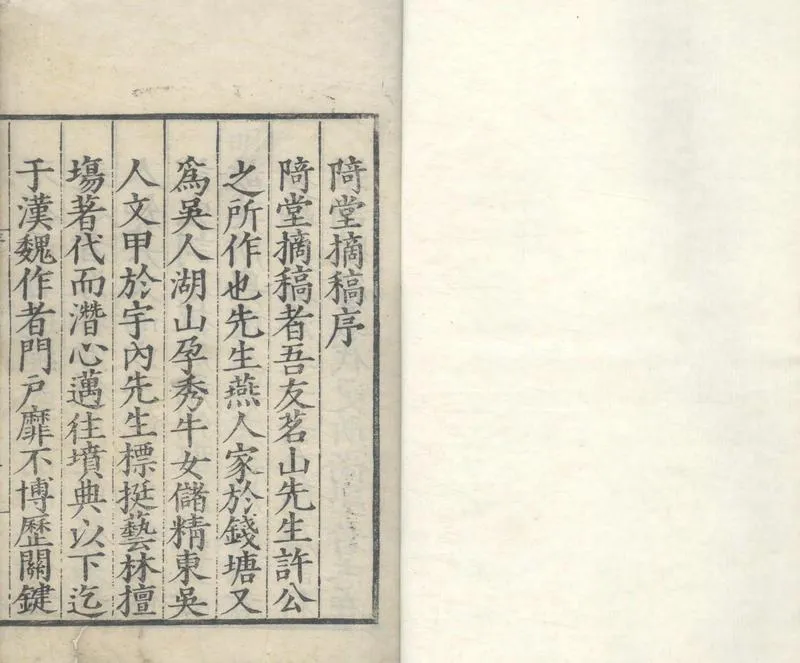 陭堂摘稿序
陭堂摘稿者吾友茗山先生許公
之所作也先生燕人家於錢塘又
爲吳人湖山孕秀牛女儲精東吳
人文甲於宇內先生標挺藝林擅
塲著代而潛心邁往墳典以下迄
于漢魏作者門戶靡不博歷關鍵